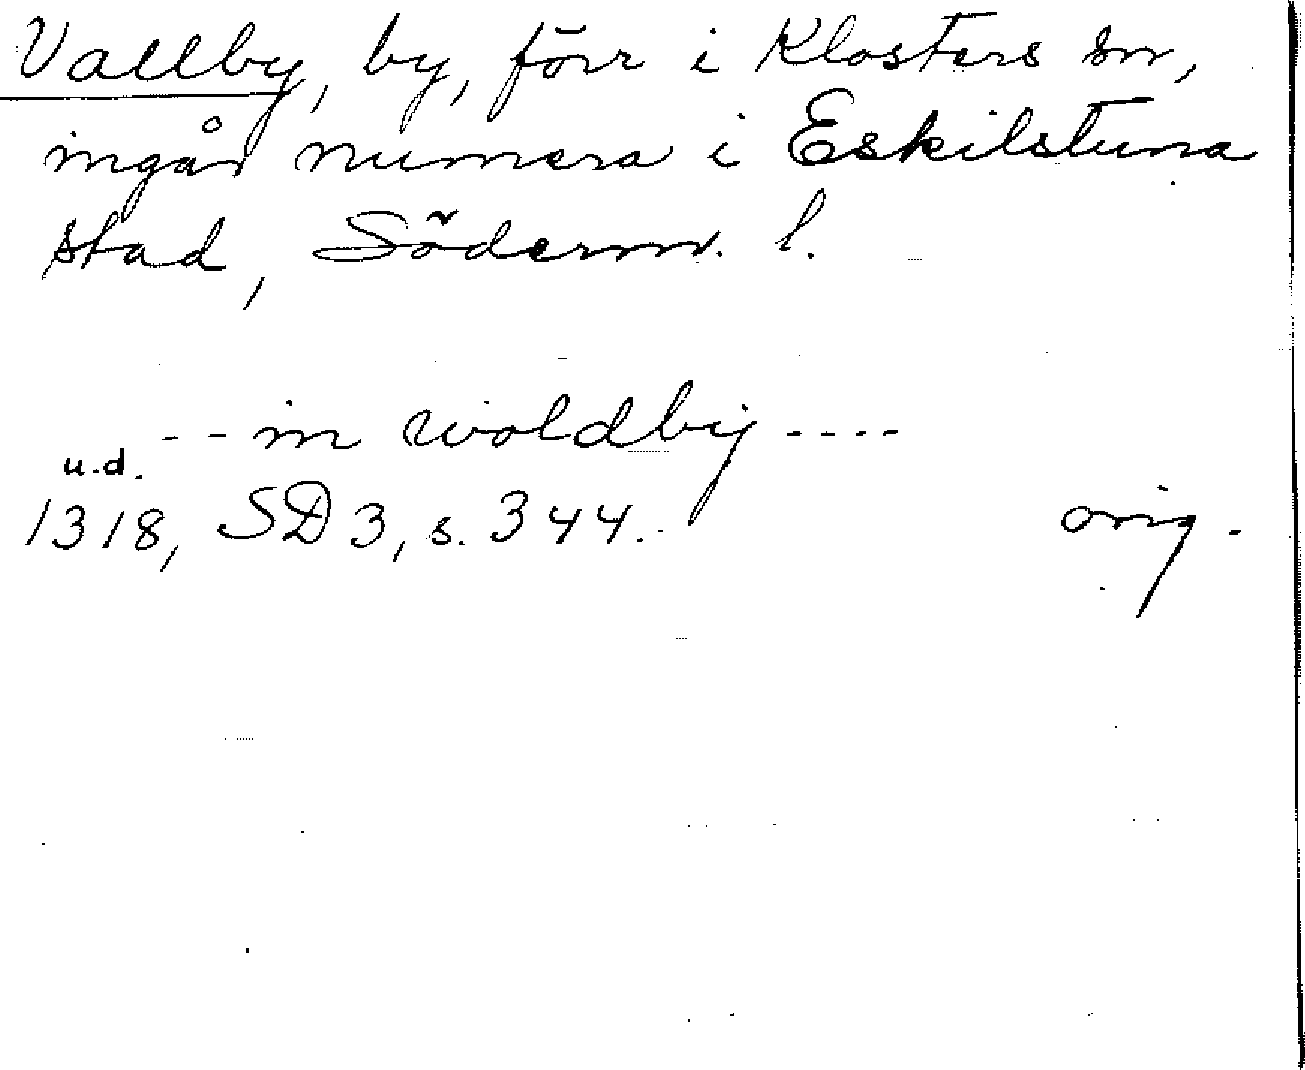 Vallby, by, förr i Klosters sn,
ingår numera i Eskilstuna
stad, Söderm. l.
-- in woldby ----
u.d.
1318, SD 3, s. 344. orig.